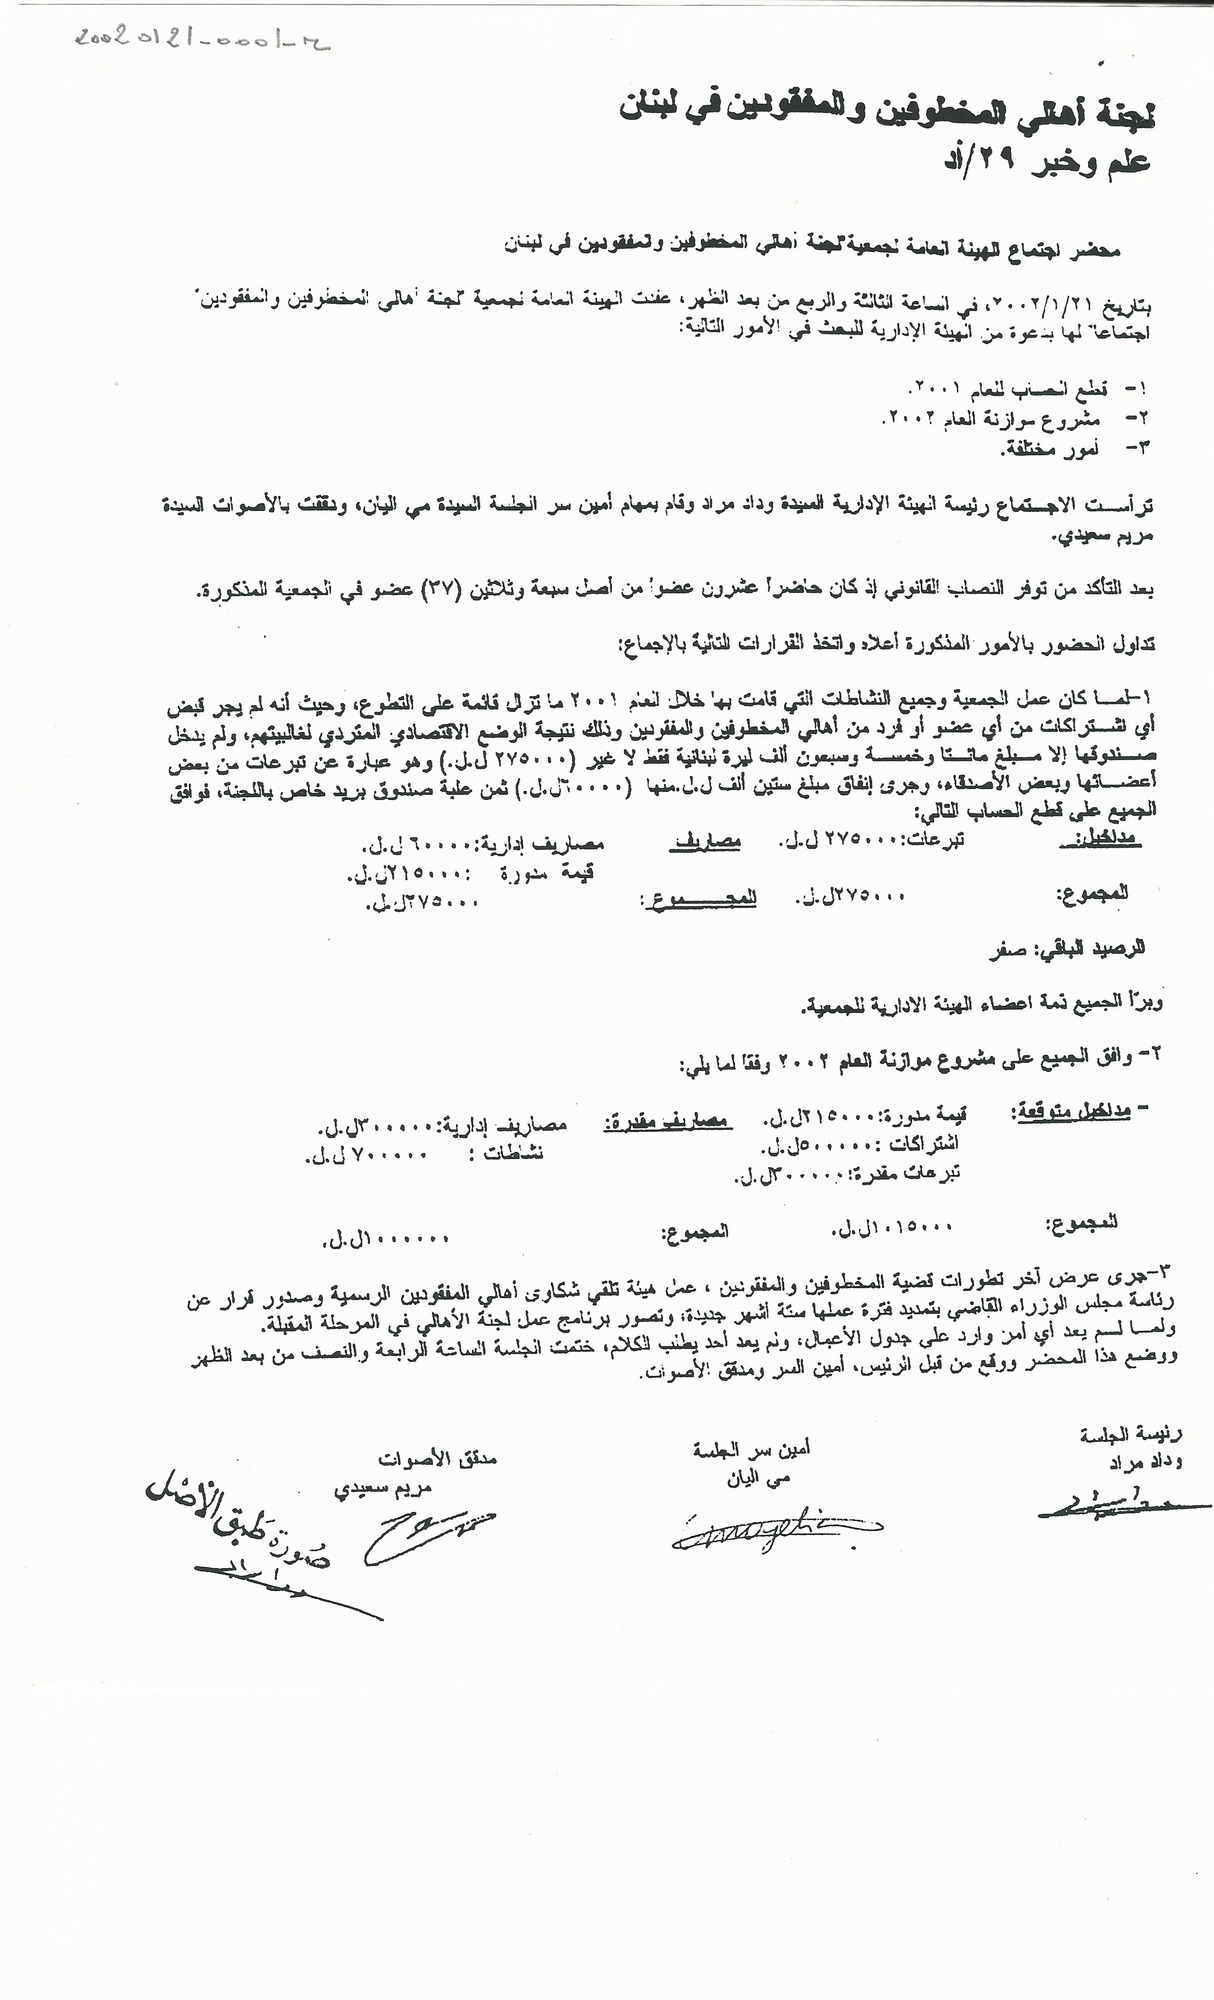 20020121-0001-م
لجنة أهالي المخطوفين والمفقودين في لبنان
علم وخبر ٢٩/أد
محضر اجتماع الهيئة العامة لجمعية "لجنة أهالي المخطوفين والمفقودين في لبنان
بتاريخ ٢٠٠٢/١/٢١، في الساعة الثالثة والربع من بعد الظهر، عقدت الهيئة العامة لجمعية "لجنة أهالي المخطوفين والمفقودين"
اجتماعاً لها بدعوة من الهيئة الإدارية للبحث في الأمور التالية:
١- قطع الحساب للعام ٢٠٠١.
٢- مشروع موازنة العام ٢٠٠٢.
٣- أمور مختلفة.
ترأست الاجتماع رئيسة الهيئة الإدارية السيدة وداد مراد وقام بمهام أمين سر الجلسة السيدة مي اليان، ودققت بالأصوات السيدة
مريم سعيدي.
بعد التأكد من توفر النصاب القانوني إذ كان حاضراً عشرون عضواً من أصل سبعة وثلاثين (٣٧) عضو في الجمعية المذكورة.
تداول الحضور بالأمور المذكورة أعلاه واتخذ القرارات التالية بالإجماع:
١-لما كان عمل الجمعية وجميع النشاطات التي قامت بها خلال العام ٢٠٠١ ما تزال قائمة على التطوع، وحيث أنه لم يجر قبض
أي اشتراكات من أي عضو أو فرد من أهالي المخطوفين والمفقودين وذلك نتيجة الوضع الاقتصادي المتردي لغالبيتهم، ولم يدخل
صندوقها إلا مبلغ مائتا وخمسة وسبعون ألف ليرة لبنانية فقط لا غير (٢٧٥٠٠٠ ل.ل.) وهو عبارة عن تبرعات من بعض
أعضائها وبعض الأصدقاء، وجرى إنفاق مبلغ ستين ألف ل.ل.منها (٦٠٠٠٠ل.ل.) ثمن علبة صندوق بريد خاص باللجنة، فوافق
الجميع على قطع الحساب التالي:
مداخيل: تبرعات:٢٧٥٠٠٠ ل.ل. مصاريف مصاريف إدارية:٦٠٠٠٠ ل.ل.
قيمة مدورة :٢١٥٠٠٠ل.ل.
المجموع: ٢٧٥٠٠٠ل.ل. المجموع: ٢٧٥٠٠٠ل.ل.
الرصيد الباقي: صفر
وبرّأ الجميع ذمة اعضاء الهيئة الادارية للجمعية.
٢- وافق الجميع على مشروع موازنة العام ٢٠٠٢ وفقاً لما يلي:
- مداخيل متوقعة: قيمة مدورة:٢١٥٠٠٠ل.ل. مصاريف مقدرة: مصاريف إدارية:٣٠٠٠٠٠ل.ل.
اشتراكات :٥٠٠٠٠٠ل.ل. نشاطات : ٧٠٠٠٠٠ ل.ل.
تبرعات مقدرة:٣٠٠٠٠٠ل.ل.
المجموع: ١٠١٥٠٠٠ل.ل. المجموع: ١٠٠٠٠٠٠ل.ل.
٣-جرى عرض آخر تطورات قضية المخطوفين والمفقودين ، عمل هيئة تلقي شكاوى أهالي المفقودين الرسمية وصدور قرار عن
رئاسة مجلس الوزراء القاضي بتمديد فترة عملها ستة أشهر جديدة، وتصور برنامج عمل لجنة الأهالي في المرحلة المقبلة.
ولما لم يعد أي أمر وارد على جدول الأعمال، ولم يعد أحد يطلب الكلام، ختمت الجلسة الساعة الرابعة والنصف من بعد الظهر
ووضع هذا المحضر ووقع من قبل الرئيس، أمين السر ومدقق الأصوات.
رئيسة الجلسة أمين سر الجلسة مدقق الأصوات
وداد مراد مي اليان مريم سعيدي
صورة طبق الأصل